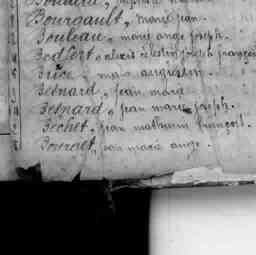 Bourgault, marie jean.
Bouleau, marie ange joseph.
Bodfert, alexis célestin joseph françois
Brice, marie augustin.
Besnard, jean marie
Besnard, jean marie joseph.
Bechet, jean mathurin françois.
Bourget, jean marie ange.